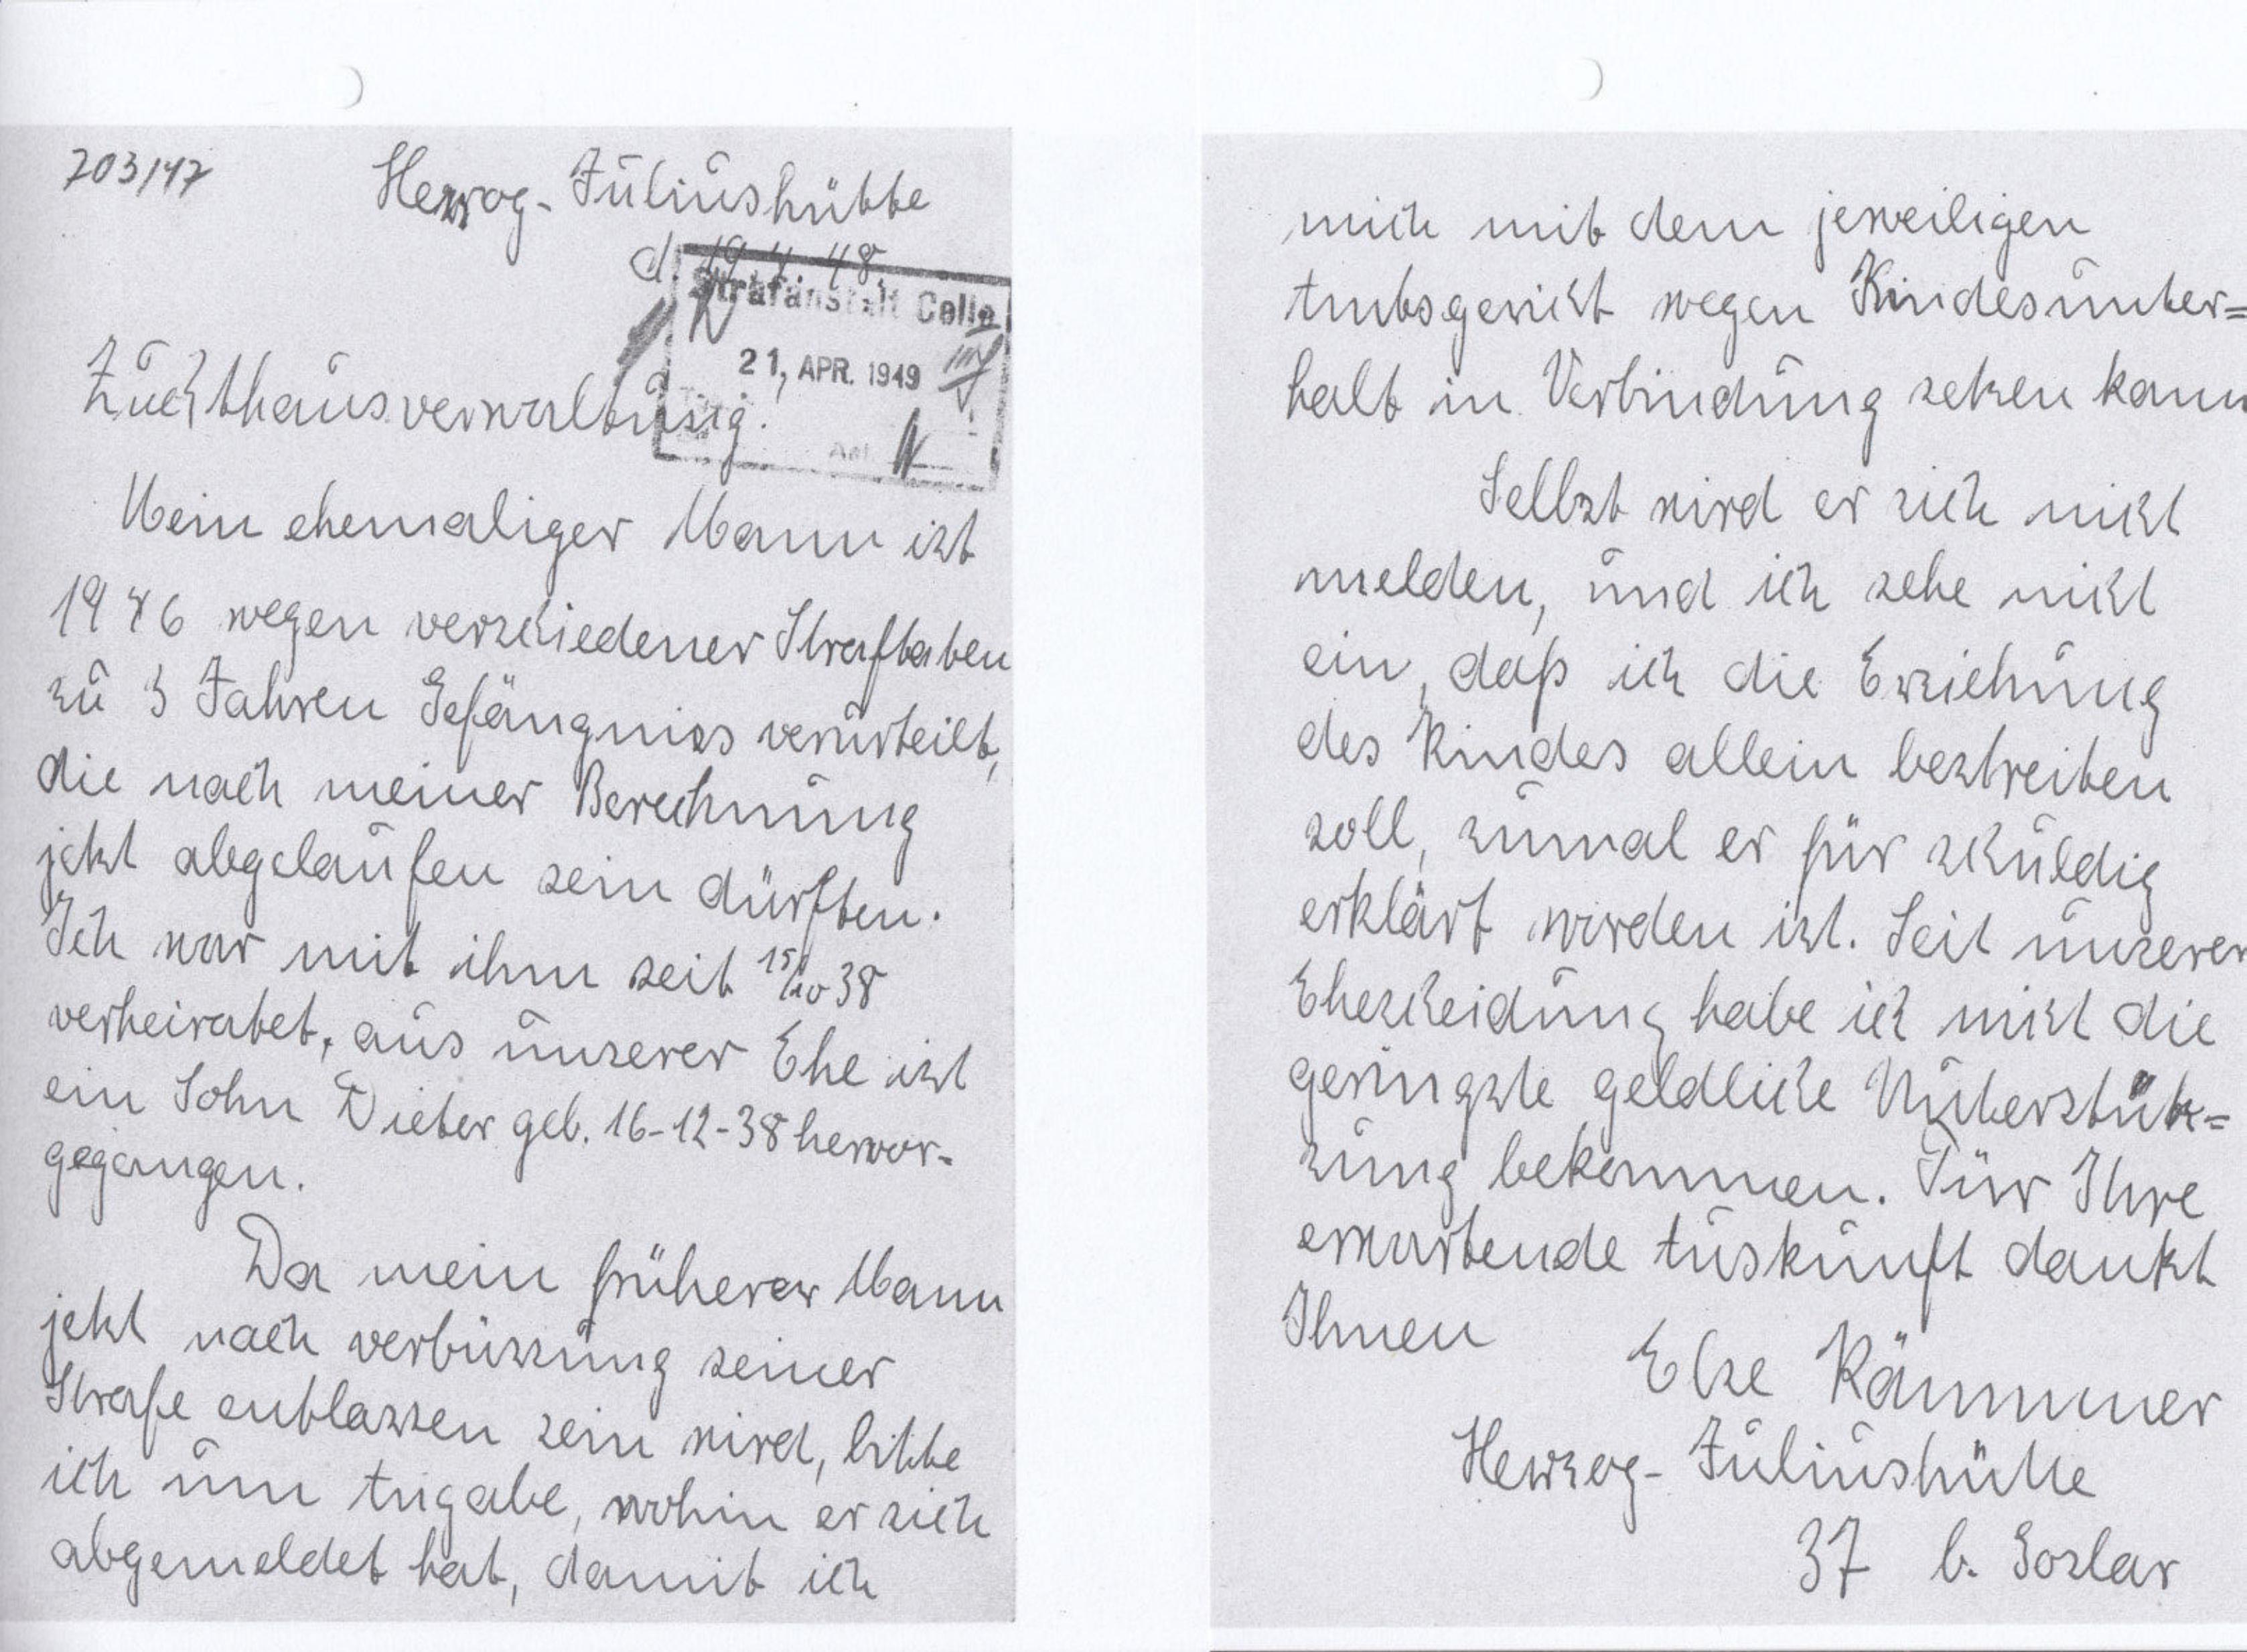 703/47
Herzog-Juliushütte
d. 19 4 48.
Strafanstalt Celle
21. APR. 1949
Zuchthausverwaltung.
Mein ehemaliger Mann ist
1946 wegen verschiedener Straftaten
zu 3 Jahren Gefängniss verurteilt,
die nach meiner Berechnung
jetzt abgelaufen sein dürften.
Ich war mit ihm seit 15/10 38
verheiratet, aus unserer Ehe ist
ein Sohn Dieter geb. 16-12-38 hervor-
gegangen.
Da mein früherer Mann
jetzt nach verbüssung seiner
Strafe entlassen sein wird, bitte
ich um Angabe, wohin er sich
abgemeldet hat, damit ich
mich mit dem jeweiligen
Amtsgericht wegen Kindesunter=
halt in Verbindung setzen kann
Selbst wird er sich nicht
melden, und ich sehe nicht
ein, daß ich die Erziehung
des Kindes allein bestreiten
soll, zumal er für schuldig
erklärt worden ist. Seit unserer
Ehescheidung habe ich nicht die
geringste geldliche Unterstüt=
zung bekommen. Für Ihre
erwartende Auskunft dankt
Ihnen
Else Kämmer
Herzog-Juliushütte
37 b. Goslar